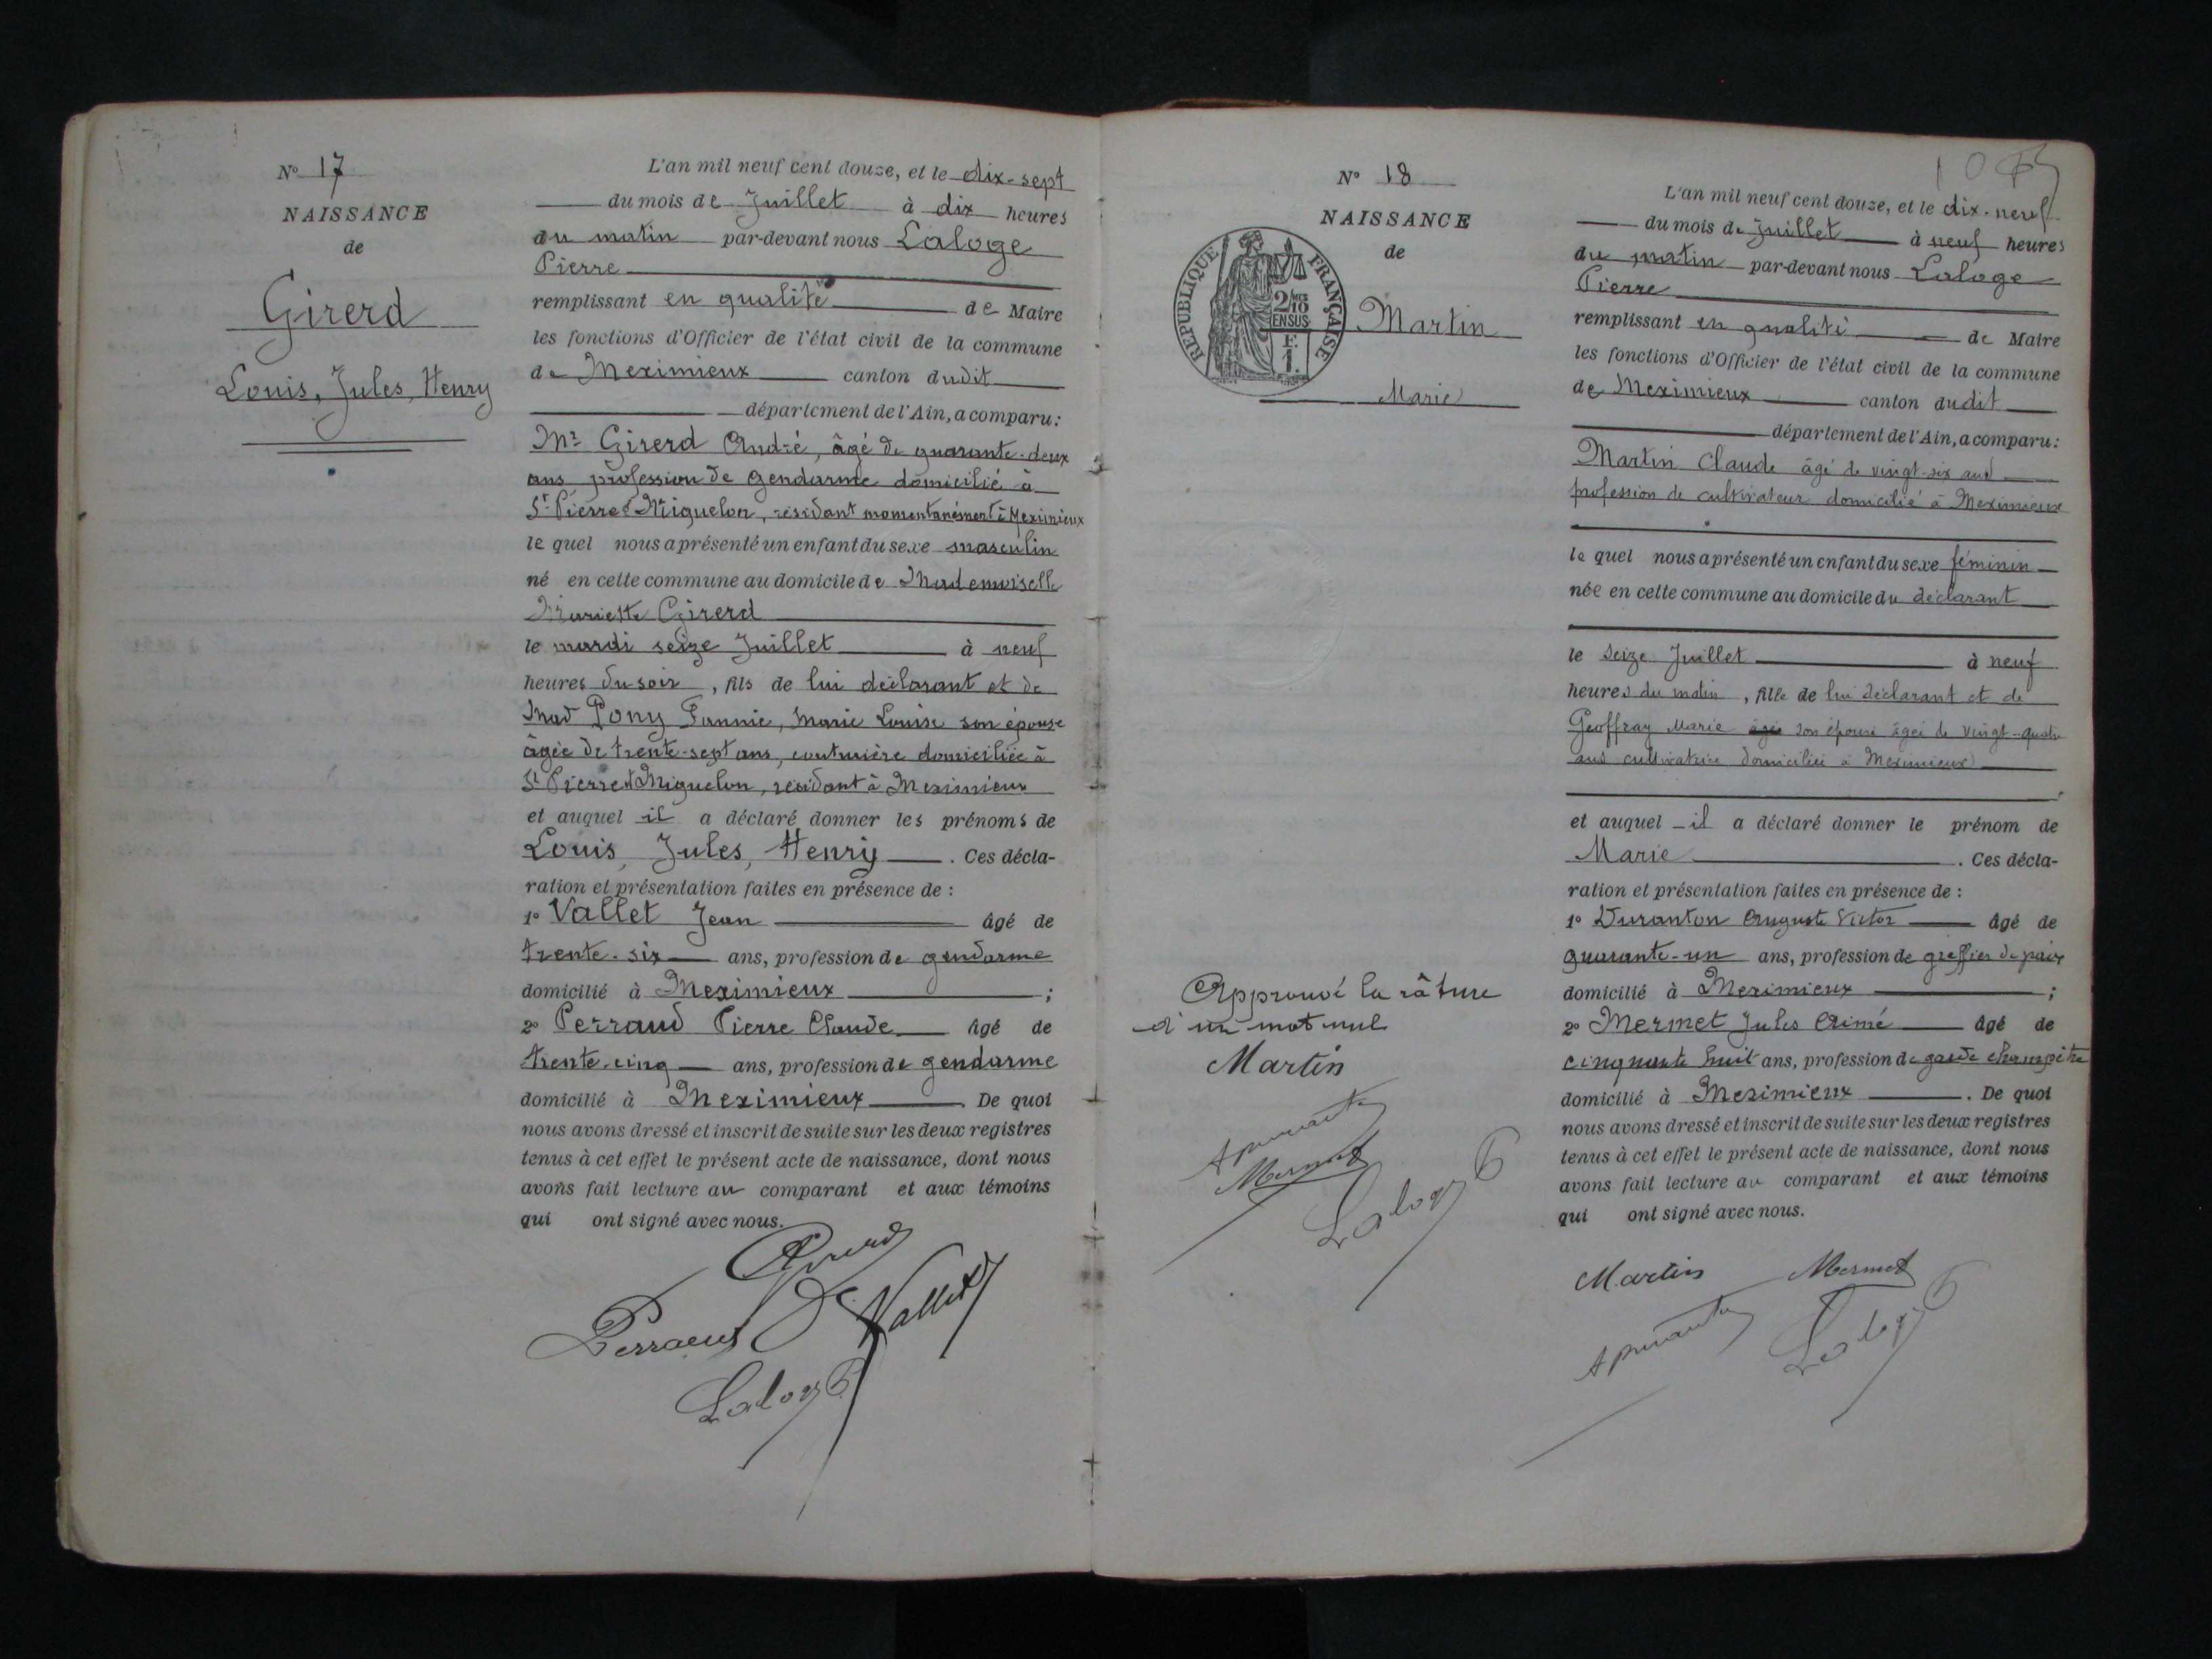 N° 17
NAISSANCE
de
Girerd
Louis, Jules, Henry
L'an mil neuf cent douze, et le dix-sept
du mois de Juillet à dix heures
du matin par-devant nous Laloge
Pierre
remplissant en qualité de Maire
les fonctions d'Officier de l'état civil de la commune
de Meximieux canton dudit
département de l'Ain, a comparu:
Mr Girerd André, âgé de quarante-deux
ans profession de gendarme domicilié à
St Pierre et Miquelon, résidant momentanément à Meximieux
le quel nous a présenté un enfant du sexe masculin
né en cette commune au domicile de Mademoiselle
Mariette Girerd
le mardi seize Juillet à neuf
heures du soir, fils de lui déclarant et de
Mad Pony Fannie, Marie Louise son épouse
âgée de trente-sept ans, couturière domiciliée à
St Pierre et Miquelon, résidant à Meximieux
et auquel il a déclaré donner les prénoms de
Louis, Jules, Henry. Ces décla-
ration et présentation faites en présence de :
1° Vallet Jean âgé de
trente-six ans, profession de gendarme
domicilié à Meximieux ;
2° Perraud Pierre Claude âgé de
trente-cinq ans, profession de gendarme
domicilié à Meximieux De quoi
nous avons dressé et inscrit de suite sur les deux registres
tenus à cet effet le présent acte de naissance, dont nous
avons fait lecture au comparant et aux témoins
qui ont signé avec nous.
Girerd
Perraud Vallet
Laloge
N° 18
NAISSANCE
de
REPUBLIQUE FRANÇAISE
2/10 EN SUS
F. 1.
Martin
Marie
Approuvé la râture
d'un mot nul
Martin
Mermet
Laloge
L'an mil neuf cent douze, et le dix-neuf
du mois de Juillet à neuf heures
du matin par-devant nous Laloge
Pierre
remplissant en qualité de Maire
les fonctions d'Officier de l'état civil de la commune
de Meximieux canton dudit
département de l'Ain, a comparu:
Martin Claude âgé de vingt-six ans
profession de cultivateur domicilié à Meximieux
le quel nous a présenté un enfant du sexe féminin
née en cette commune au domicile du déclarant
le seize Juillet à neuf
heures du matin, fille de lui déclarant et de
Geoffray Marie âgée son épouse âgée de vingt-quatre
ans cultivatrice domiciliée à Meximieux
et auquel il a déclaré donner le prénom de
Marie. Ces décla-
ration et présentation faites en présence de :
1° Duranton Auguste Victor âgé de
quarante-un ans, profession de greffier de paix
domicilié à Meximieux ;
2° Mermet Jules Aimé âgé de
cinquante huit ans, profession de garde champêtre
domicilié à Meximieux. De quoi
nous avons dressé et inscrit de suite sur les deux registres
tenus à cet effet le présent acte de naissance, dont nous
avons fait lecture au comparant et aux témoins
qui ont signé avec nous.
Martin Mermet
Laloge